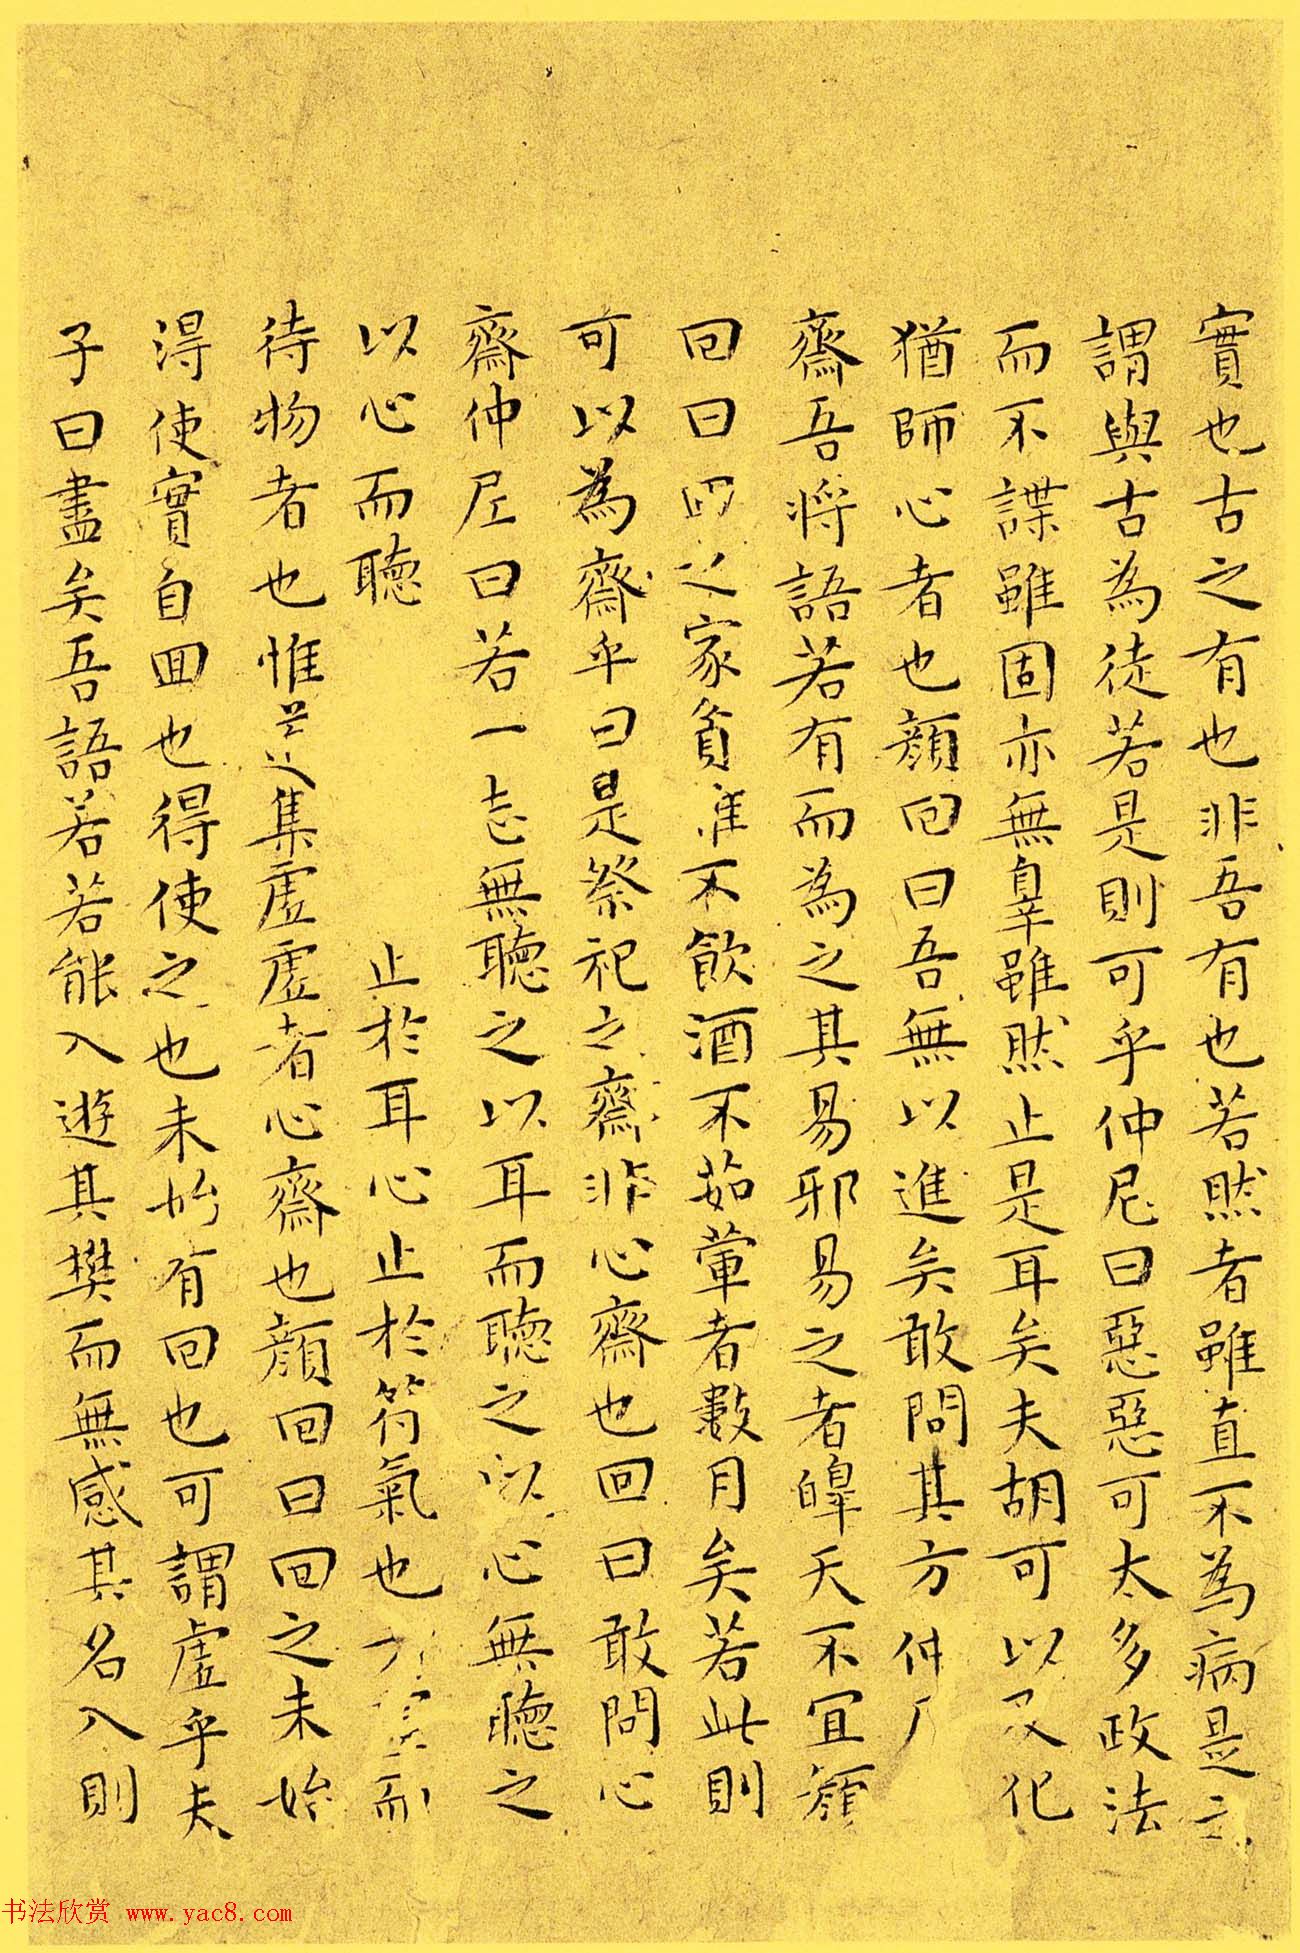 實也古之有也非吾有也若然者雖直不為病是之
謂與古為徒若是則可乎仲尼曰惡惡可太多政法
而不諜雖固亦無辠雖然止是耳矣夫胡可以及化
猶師心者也顏回曰吾無以進矣敢問其方仲尼
齋吾將語若有而為之其易邪易之者皞天不宜顏
回曰回之家貧唯不飲酒不茹葷者數月矣若此則
可以為齋乎曰是祭祀之齋非心齋也回曰敢問心
齋仲尼曰若一志無聽之以耳而聽之以心無聽之
以心而聽 止於耳心止於符氣也 而
待物者也惟道集虛虛者心齋也顏回曰回之未始
得使實自回也得使之也未始有回也可謂虛乎夫
子曰盡矣吾語若若能入遊其樊而無感其名入則
书法欣赏 www.yac8.com